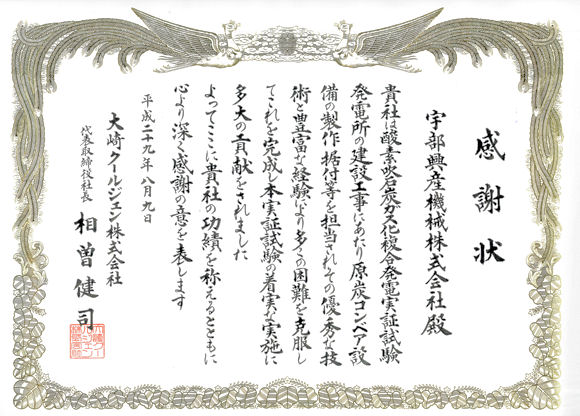 感謝状
宇部興産機械株式会社 殿
貴社は酸素吹石炭ガス化複合発電実証試験
発電所の建設工事にあたり原炭コンベア設
備の製作据付等を担当されその優秀な技
術と豊富な経験により多くの困難を克服し
てこれを完成し本実証試験の着実な実施に
多大の貢献をされました
よってここに貴社の功績を称えるとともに
心より深く感謝の意を表します
平成二十九年八月九日
大崎クールジェン株式会社
代表取締役社長 相曽健司